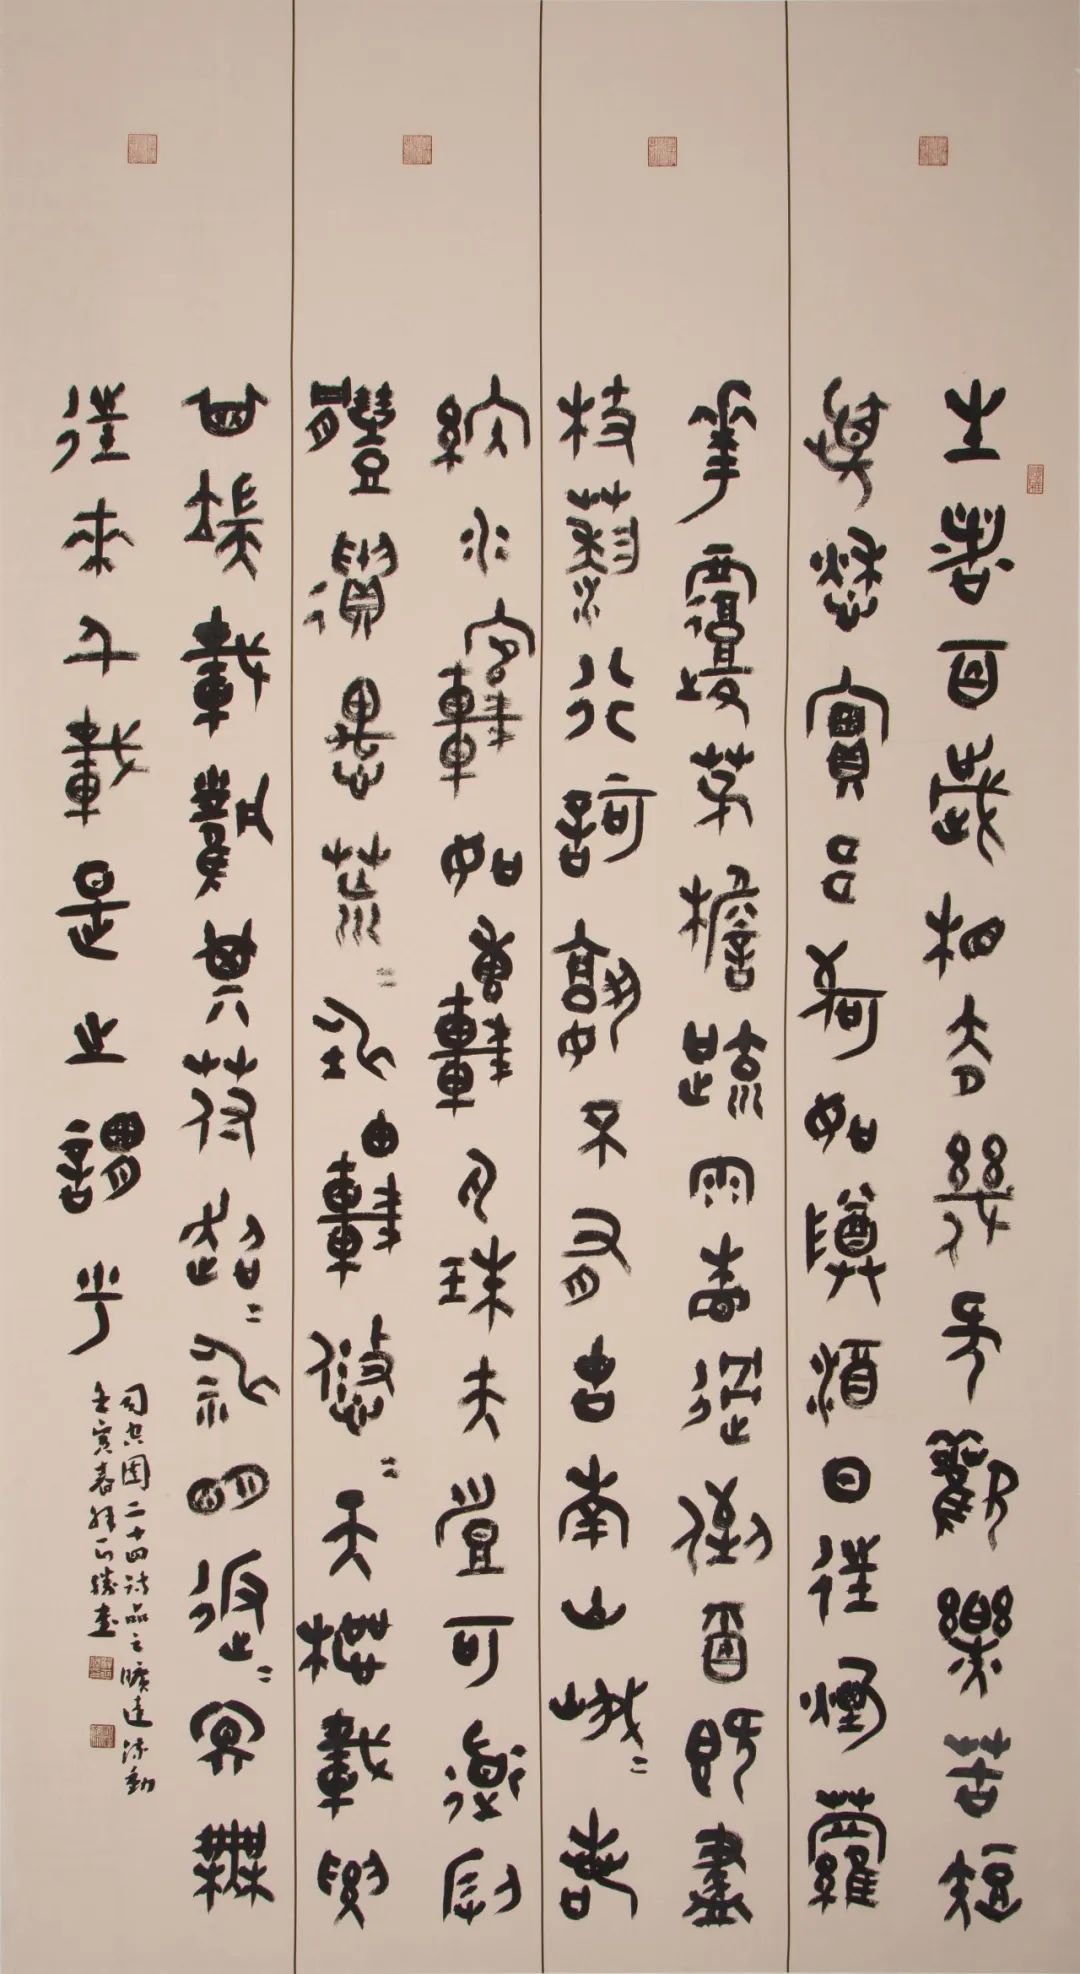 生者百歲相去幾何歡樂苦短
憂愁實多何如罇酒日往煙蘿
花覆茅檐疏雨相過倒酒既盡
枝藜行歌孰不有古南山峨＝若
納水輨如轉丸珠夫豈可道假
體遺愚荒＝坤軸悠＝天樞載要
其端載聞其符超＝神明返＝冥無
往來千載是之謂乎
司空圖二十四詩品之曠達流動
壬寅春勝書